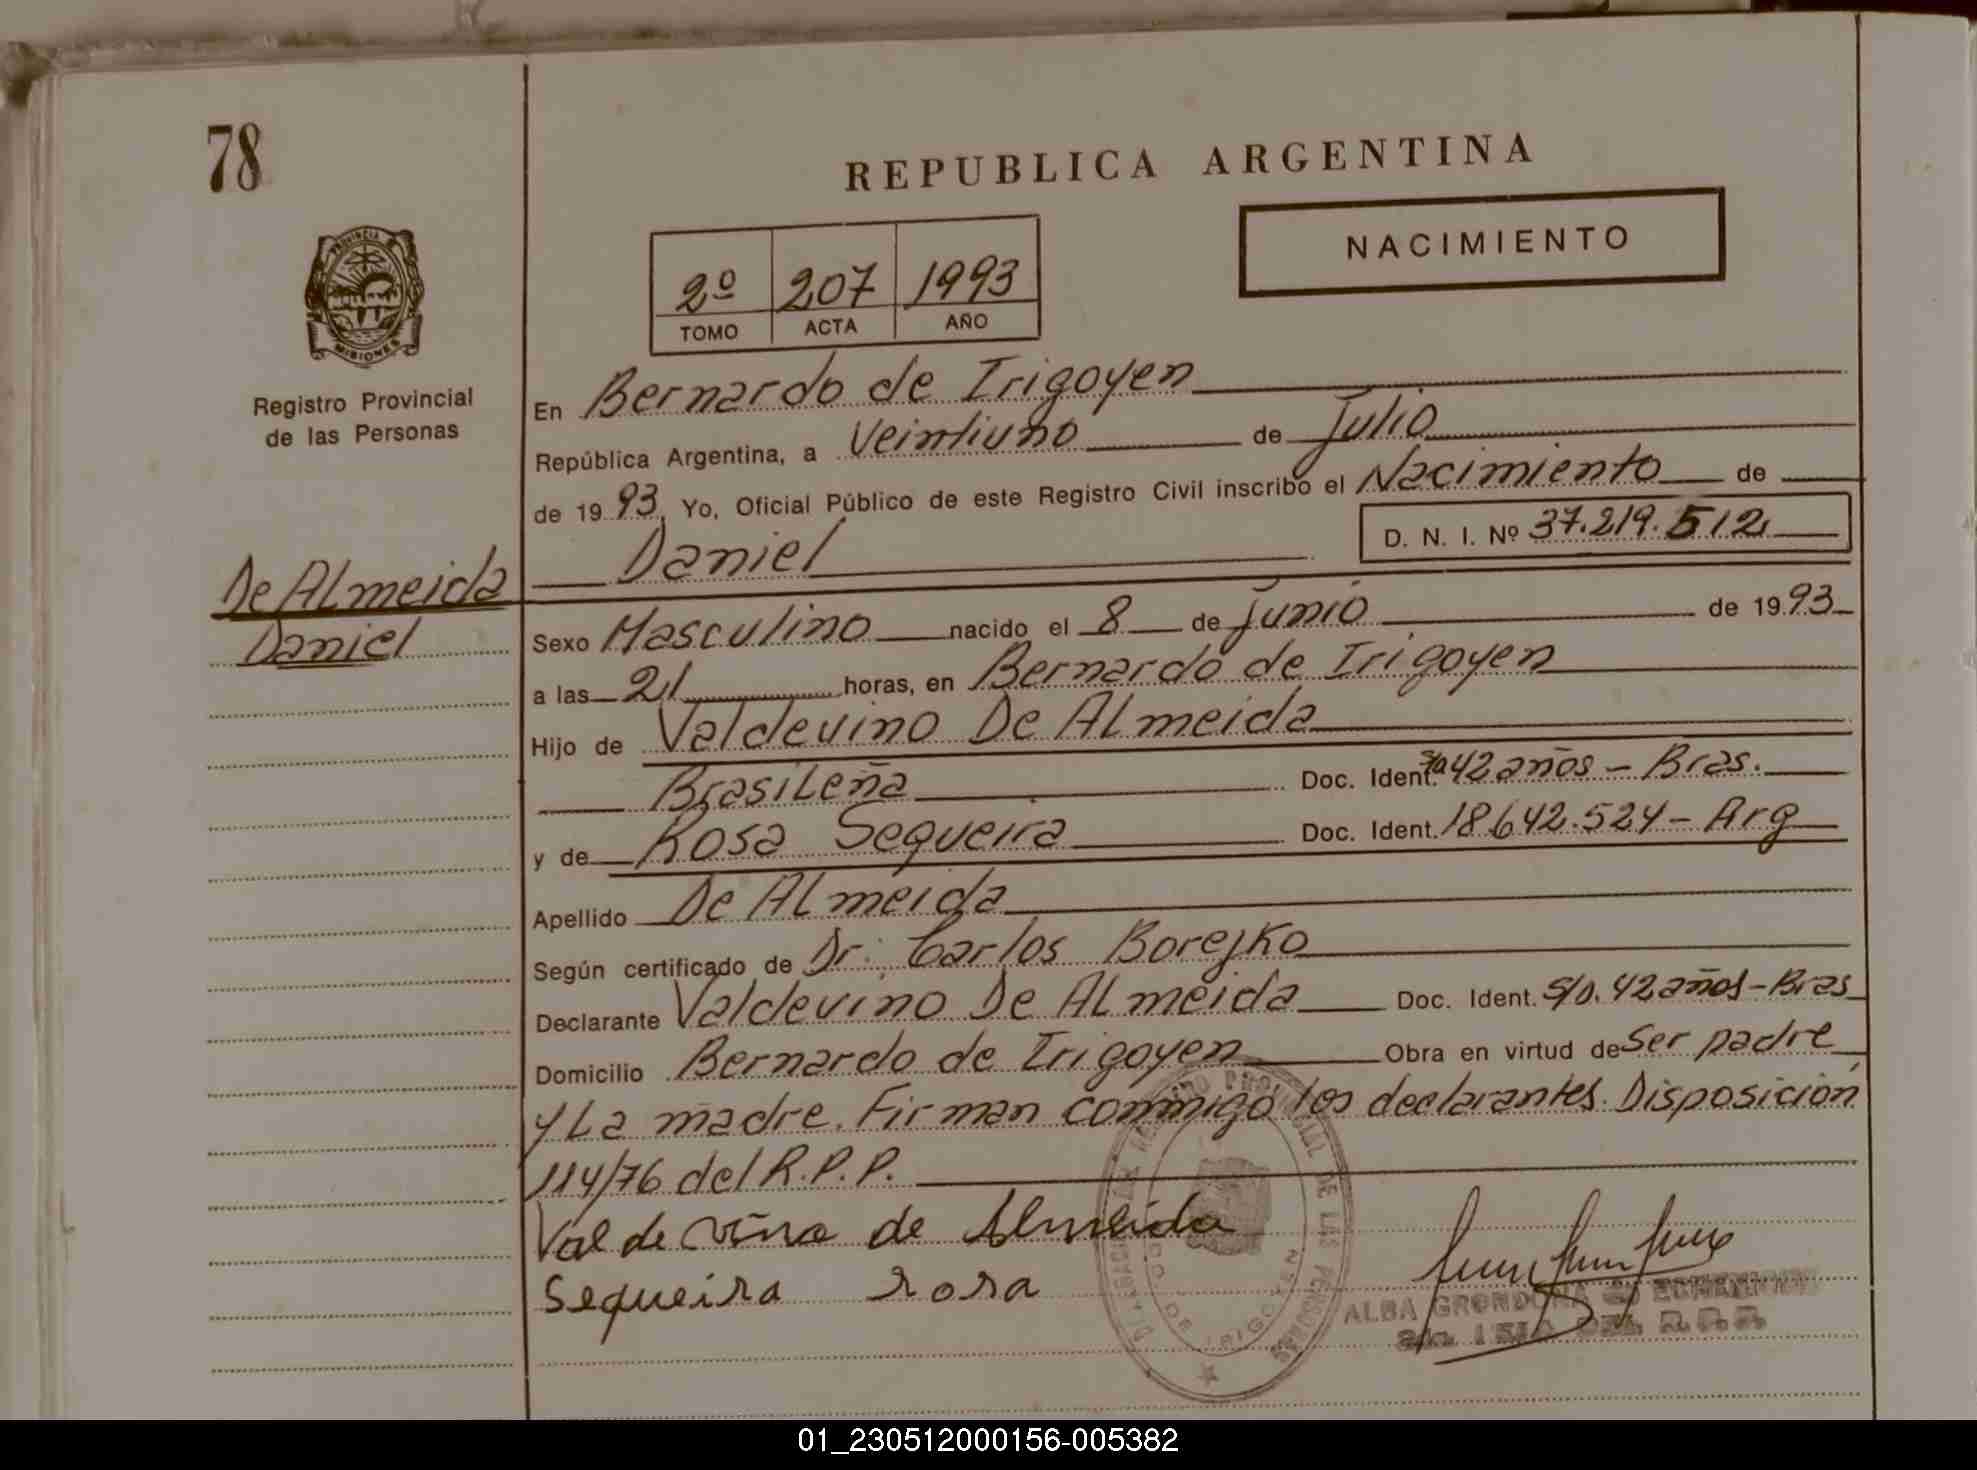 78
REPUBLICA ARGENTINA
NACIMIENTO
2º 207 1993
TOMO ACTA AÑO
PROVINCIA
MISIONES
Registro Provincial
de las Personas
De Almeida
Daniel
En Bernardo de Irigoyen
República Argentina, a Veintiuno de Julio
de 1993, Yo, Oficial Público de este Registro Civil inscribo el Nacimiento de
D. N. I. Nº 37.219.512
Daniel
Sexo Masculino nacido el 8 de Junio de 1993
a las 21 horas, en Bernardo de Irigoyen
Hijo de Valdevino De Almeida
Brasileña Doc. Ident. 42 años - Bras.
y de Rosa Sequeira Doc. Ident. 18.642.524 - Arg
Apellido De Almeida
Según certificado de Dr. Carlos Borejko
Declarante Valdevino De Almeida Doc. Ident. S/D. 42 años - Bras
Domicilio Bernardo de Irigoyen Obra en virtud de Ser padre
y La madre. Firman conmigo los declarantes. Disposición
114/76 del R.P.P.
Valdevino de Almeida
Sequeira rosa
ALBA GRONDONA
DEL R.P.P.
01_230512000156-005382